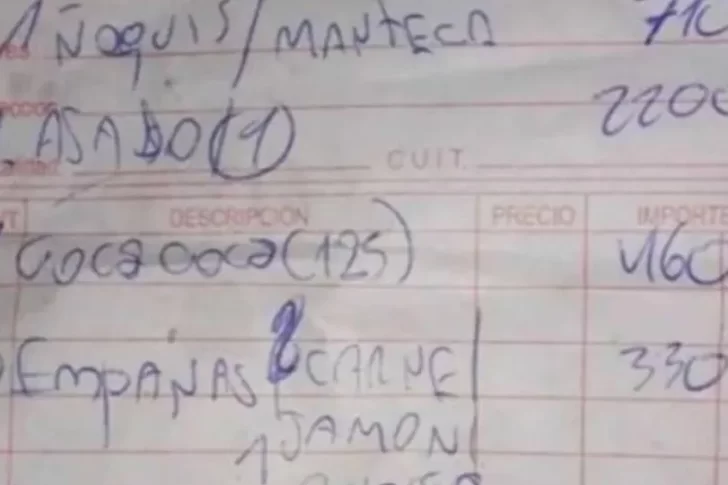 1 ÑOQUIS/MANTECA 710
ASADO (1) 2200
CUIT.
DESCRIPCION PRECIO IMPORTE
COCA COCA (125) 460
EMPAÑAS 2 CARNE 330
1 JAMON